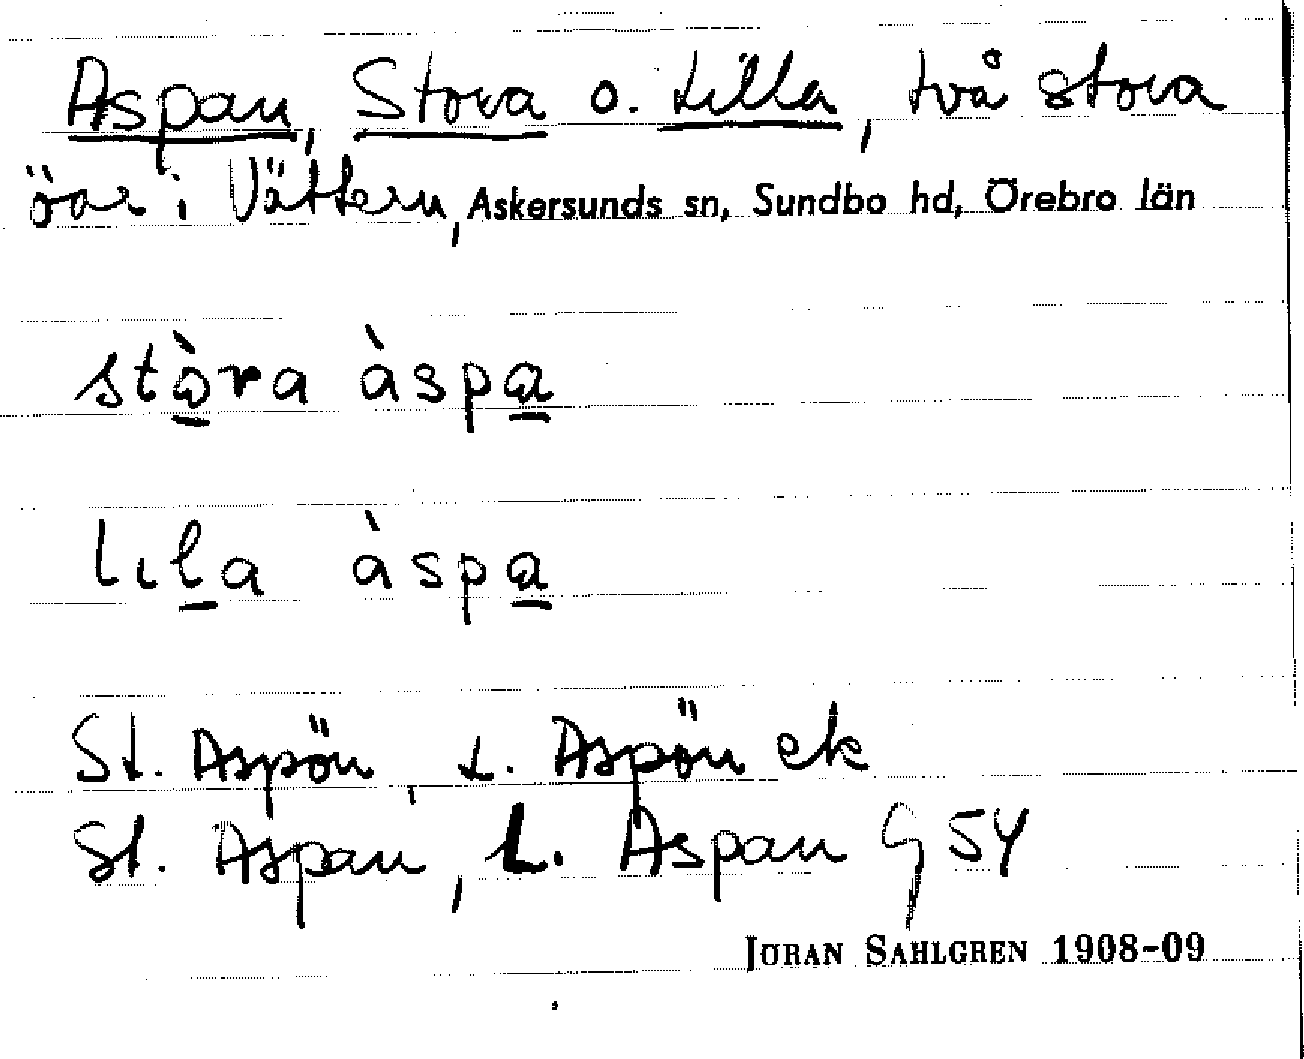 Aspan, Stora o. Lilla, två stora
öar i Vättern, Askersunds sn, Sundbo hd, Örebro län
stòra àspa
lıla àspa
St. Aspön, L. Aspön ek
St. Aspan, L. Aspan G 54
JÖRAN SAHLGREN 1908-09